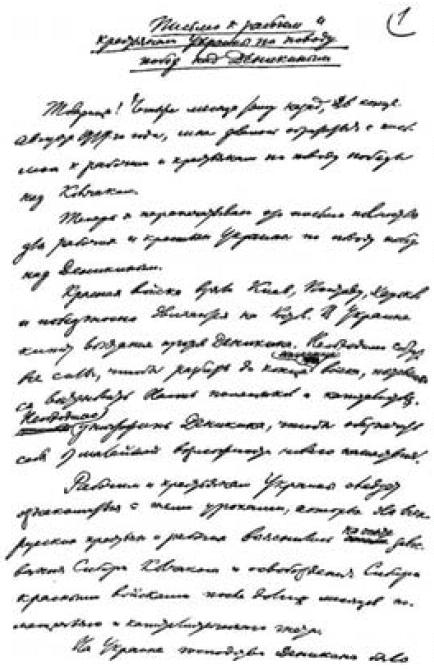 1
Письмо к рабочим и
крестьянам Украины по поводу
побед над Деникиным
Товарищи! Четыре месяца тому назад, в конце
августа 1919-го года, мне довелось обратиться с пись-
мом к рабочим и крестьянам по поводу победы
над Колчаком.
Теперь я перепечатываю это письмо полностью
для рабочих и крестьян Украины по поводу побед
над Деникиным.
Красные войска взяли Киев, Полтаву, Харьков
и победоносно двигаются на Ростов. В Украине
кипит восстание против Деникина. Необходимо собрать
все силы, чтобы разбить до конца войска,
помещиков и капиталистов.
Необходимо уничтожить Деникина, чтобы обеспечить
себя от малейшей возможности нового нашествия.
Рабочим и крестьянам Украины следует
ознакомиться с теми уроками, которые для всех
русских крестьян и рабочих на опыте завое-
вания Сибири Колчаком и освобождения Сибири
красными войсками после долгих месяцев по-
мещичьего и капиталистического гнета.
На Украине господство Деникина было